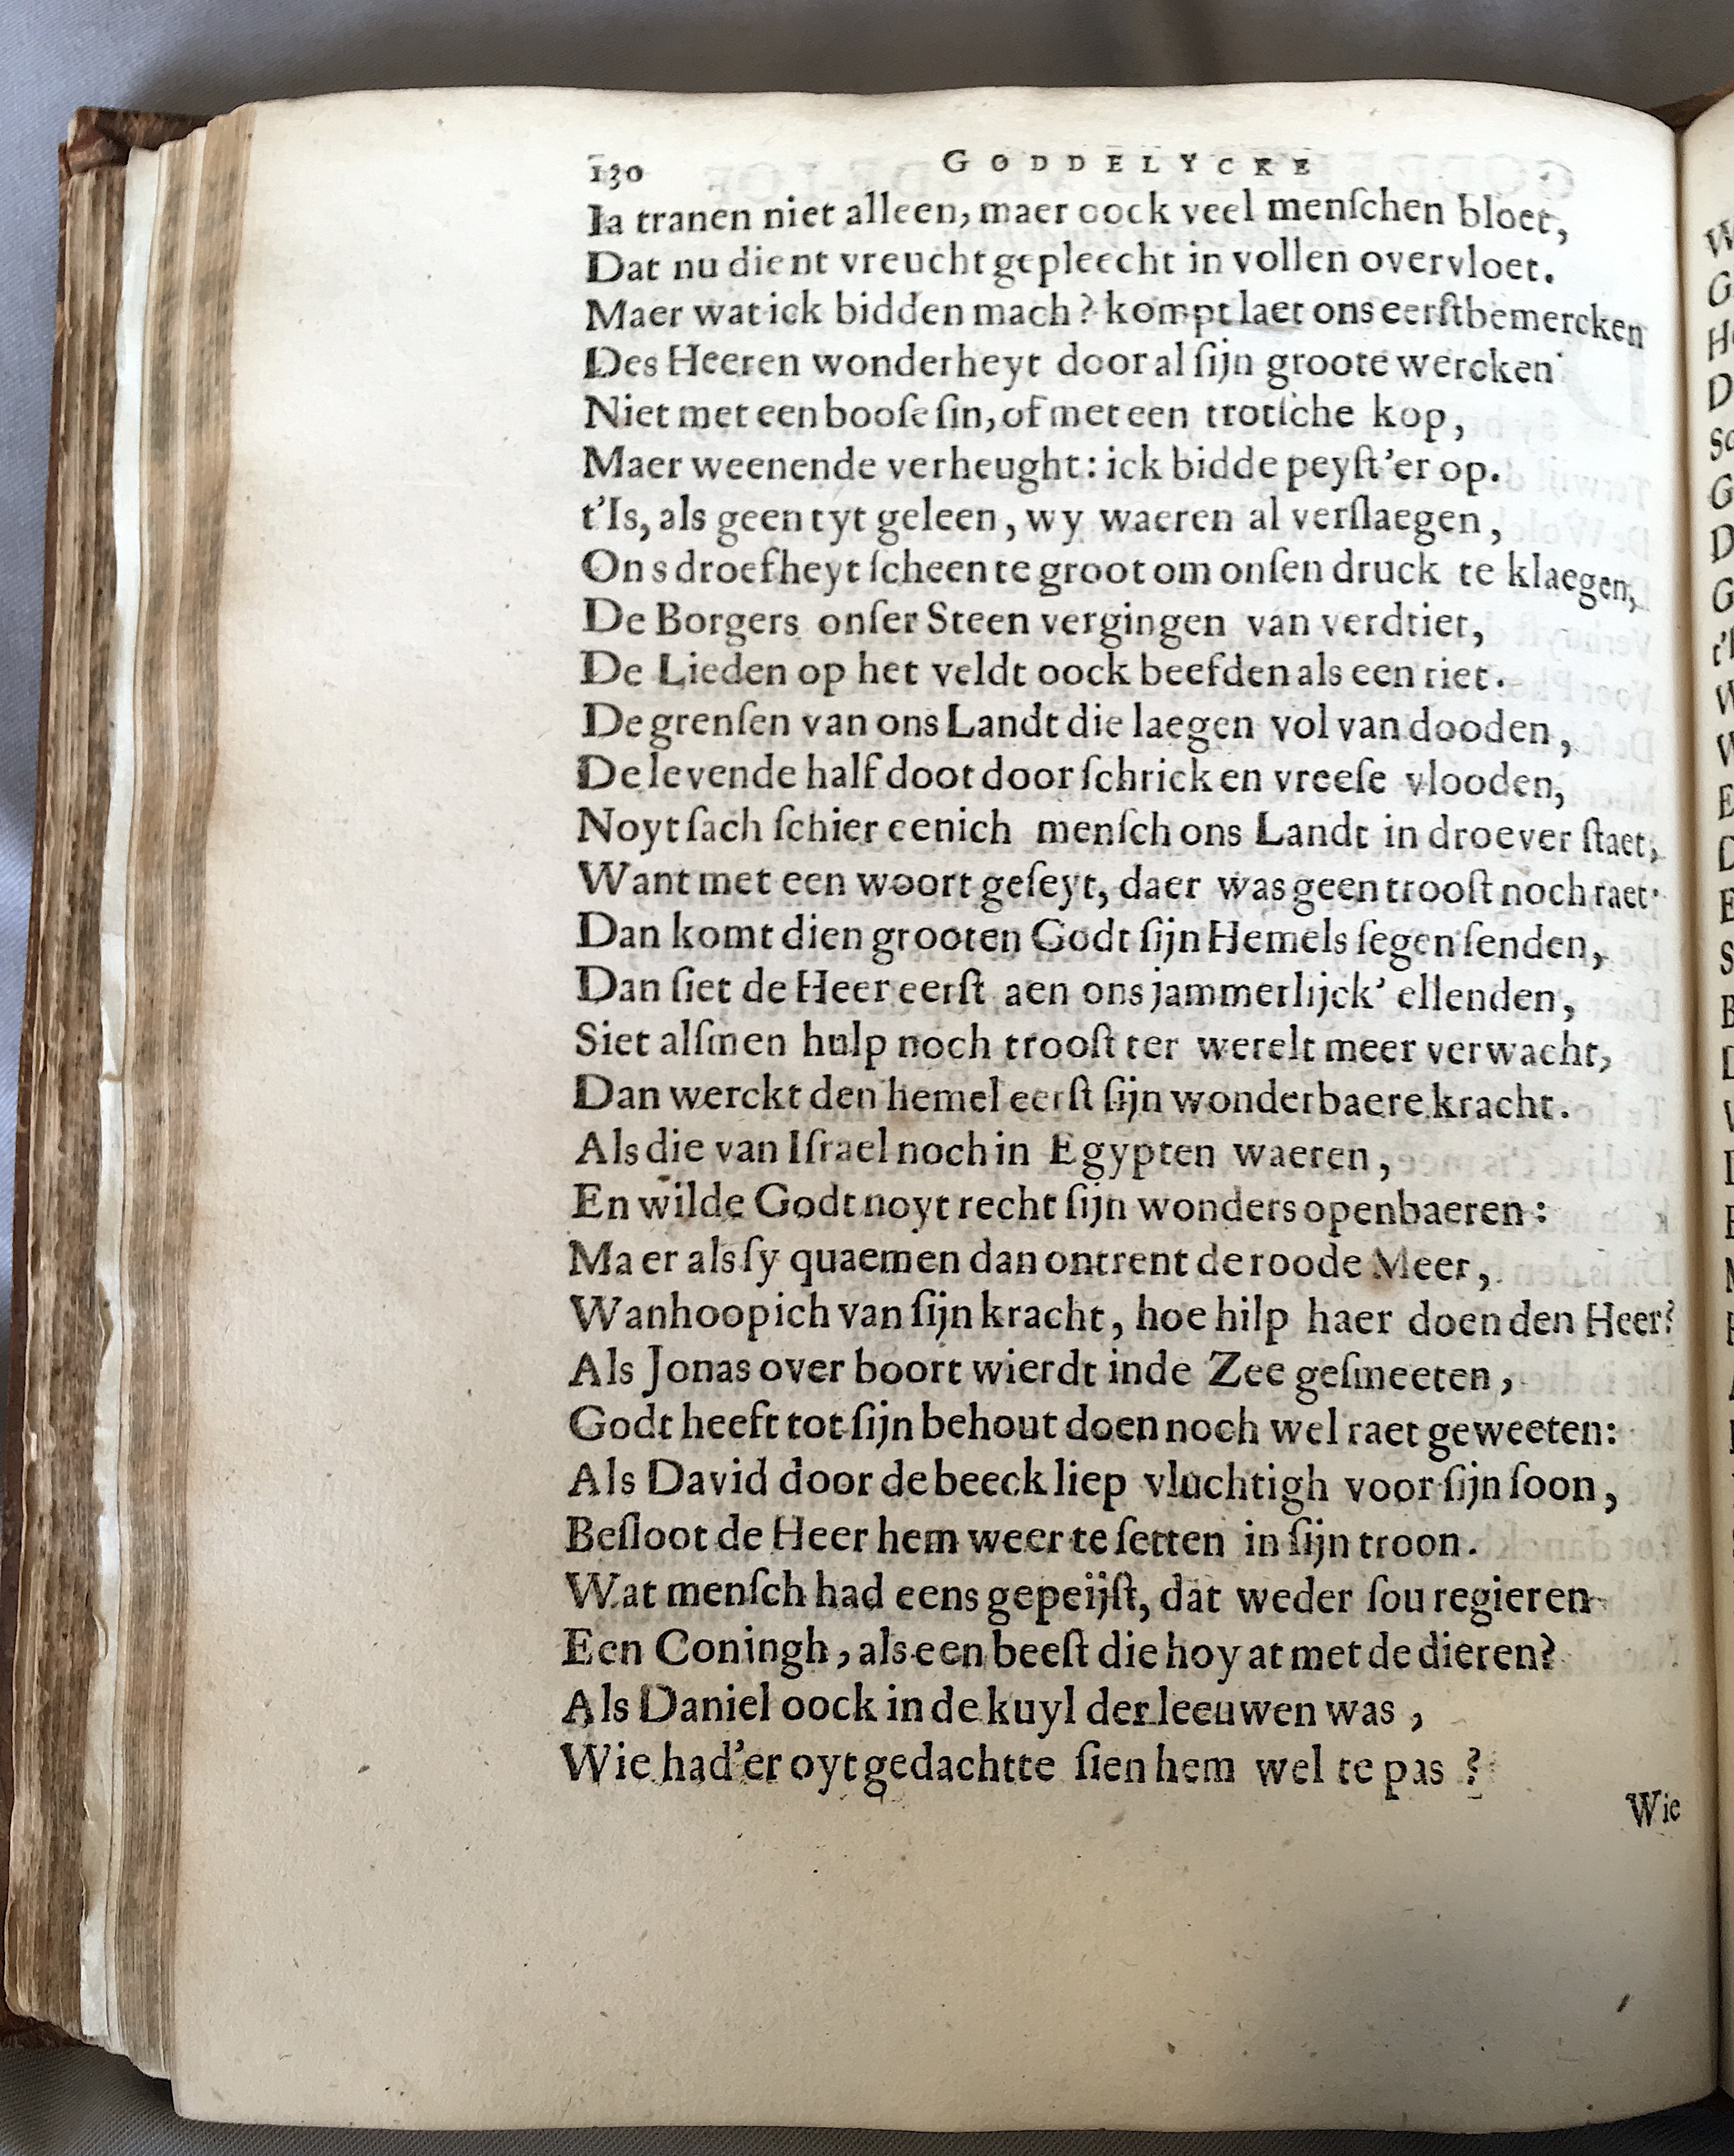 130 GODDELYCKE
Ia tranen niet alleen, maer oock veel menſchen bloet,
Dat nu dient vreucht gepleecht in vollen overvloet.
Maer wat ick bidden mach? kompt laet ons eerſt bemercken
Des Heeren wonderheyt door al ſijn groote wercken
Niet met een booſe ſin, of met een trotſche kop,
Maer weenende verheught: ick bidde peyſt'er op.
t'Is, als geen tyt geleen, wy waeren al verſlaegen,
Ons droefheyt ſcheen te groot om onſen druck te klaegen,
De Borgers onſer Steen vergingen van verdtiet,
De Lieden op het veldt oock beefden als een riet.
De grenſen van ons Landt die laegen vol van dooden,
De levende half doot door ſchrick en vreeſe vlooden,
Noyt ſach ſchier eenich menſch ons Landt in droever ſtaet,
Want met een woort geſeyt, daer was geen trooſt noch raet.
Dan komt dien grooten Godt ſijn Hemels ſegen ſenden,
Dan ſiet de Heer eerſt aen ons jammerlijck' ellenden,
Siet alſmen hulp noch trooſt ter werelt meer verwacht,
Dan werckt den hemel eerſt ſijn wonderbaere kracht.
Als die van Iſrael noch in Egypten waeren,
En wilde Godt noyt recht ſijn wonders openbaeren:
Maer als ſy quaemen dan ontrent de roode Meer,
Wanhoopich van ſijn kracht, hoe hilp haer doen den Heer?
Als Jonas over boort wierdt inde Zee geſmeeten,
Godt heeft tot ſijn behout doen noch wel raet geweeten:
Als David door de beeck liep vluchtigh voor ſijn ſoon,
Beſloot de Heer hem weer te ſetten in ſijn troon.
Wat menſch had eens gepeijſt, dat weder ſou regieren
Een Coningh, als een beeſt die hoy at met de dieren?
Als Daniel oock in de kuyl der leeuwen was,
Wie had'er oyt gedachtte ſien hem wel te pas?
Wie